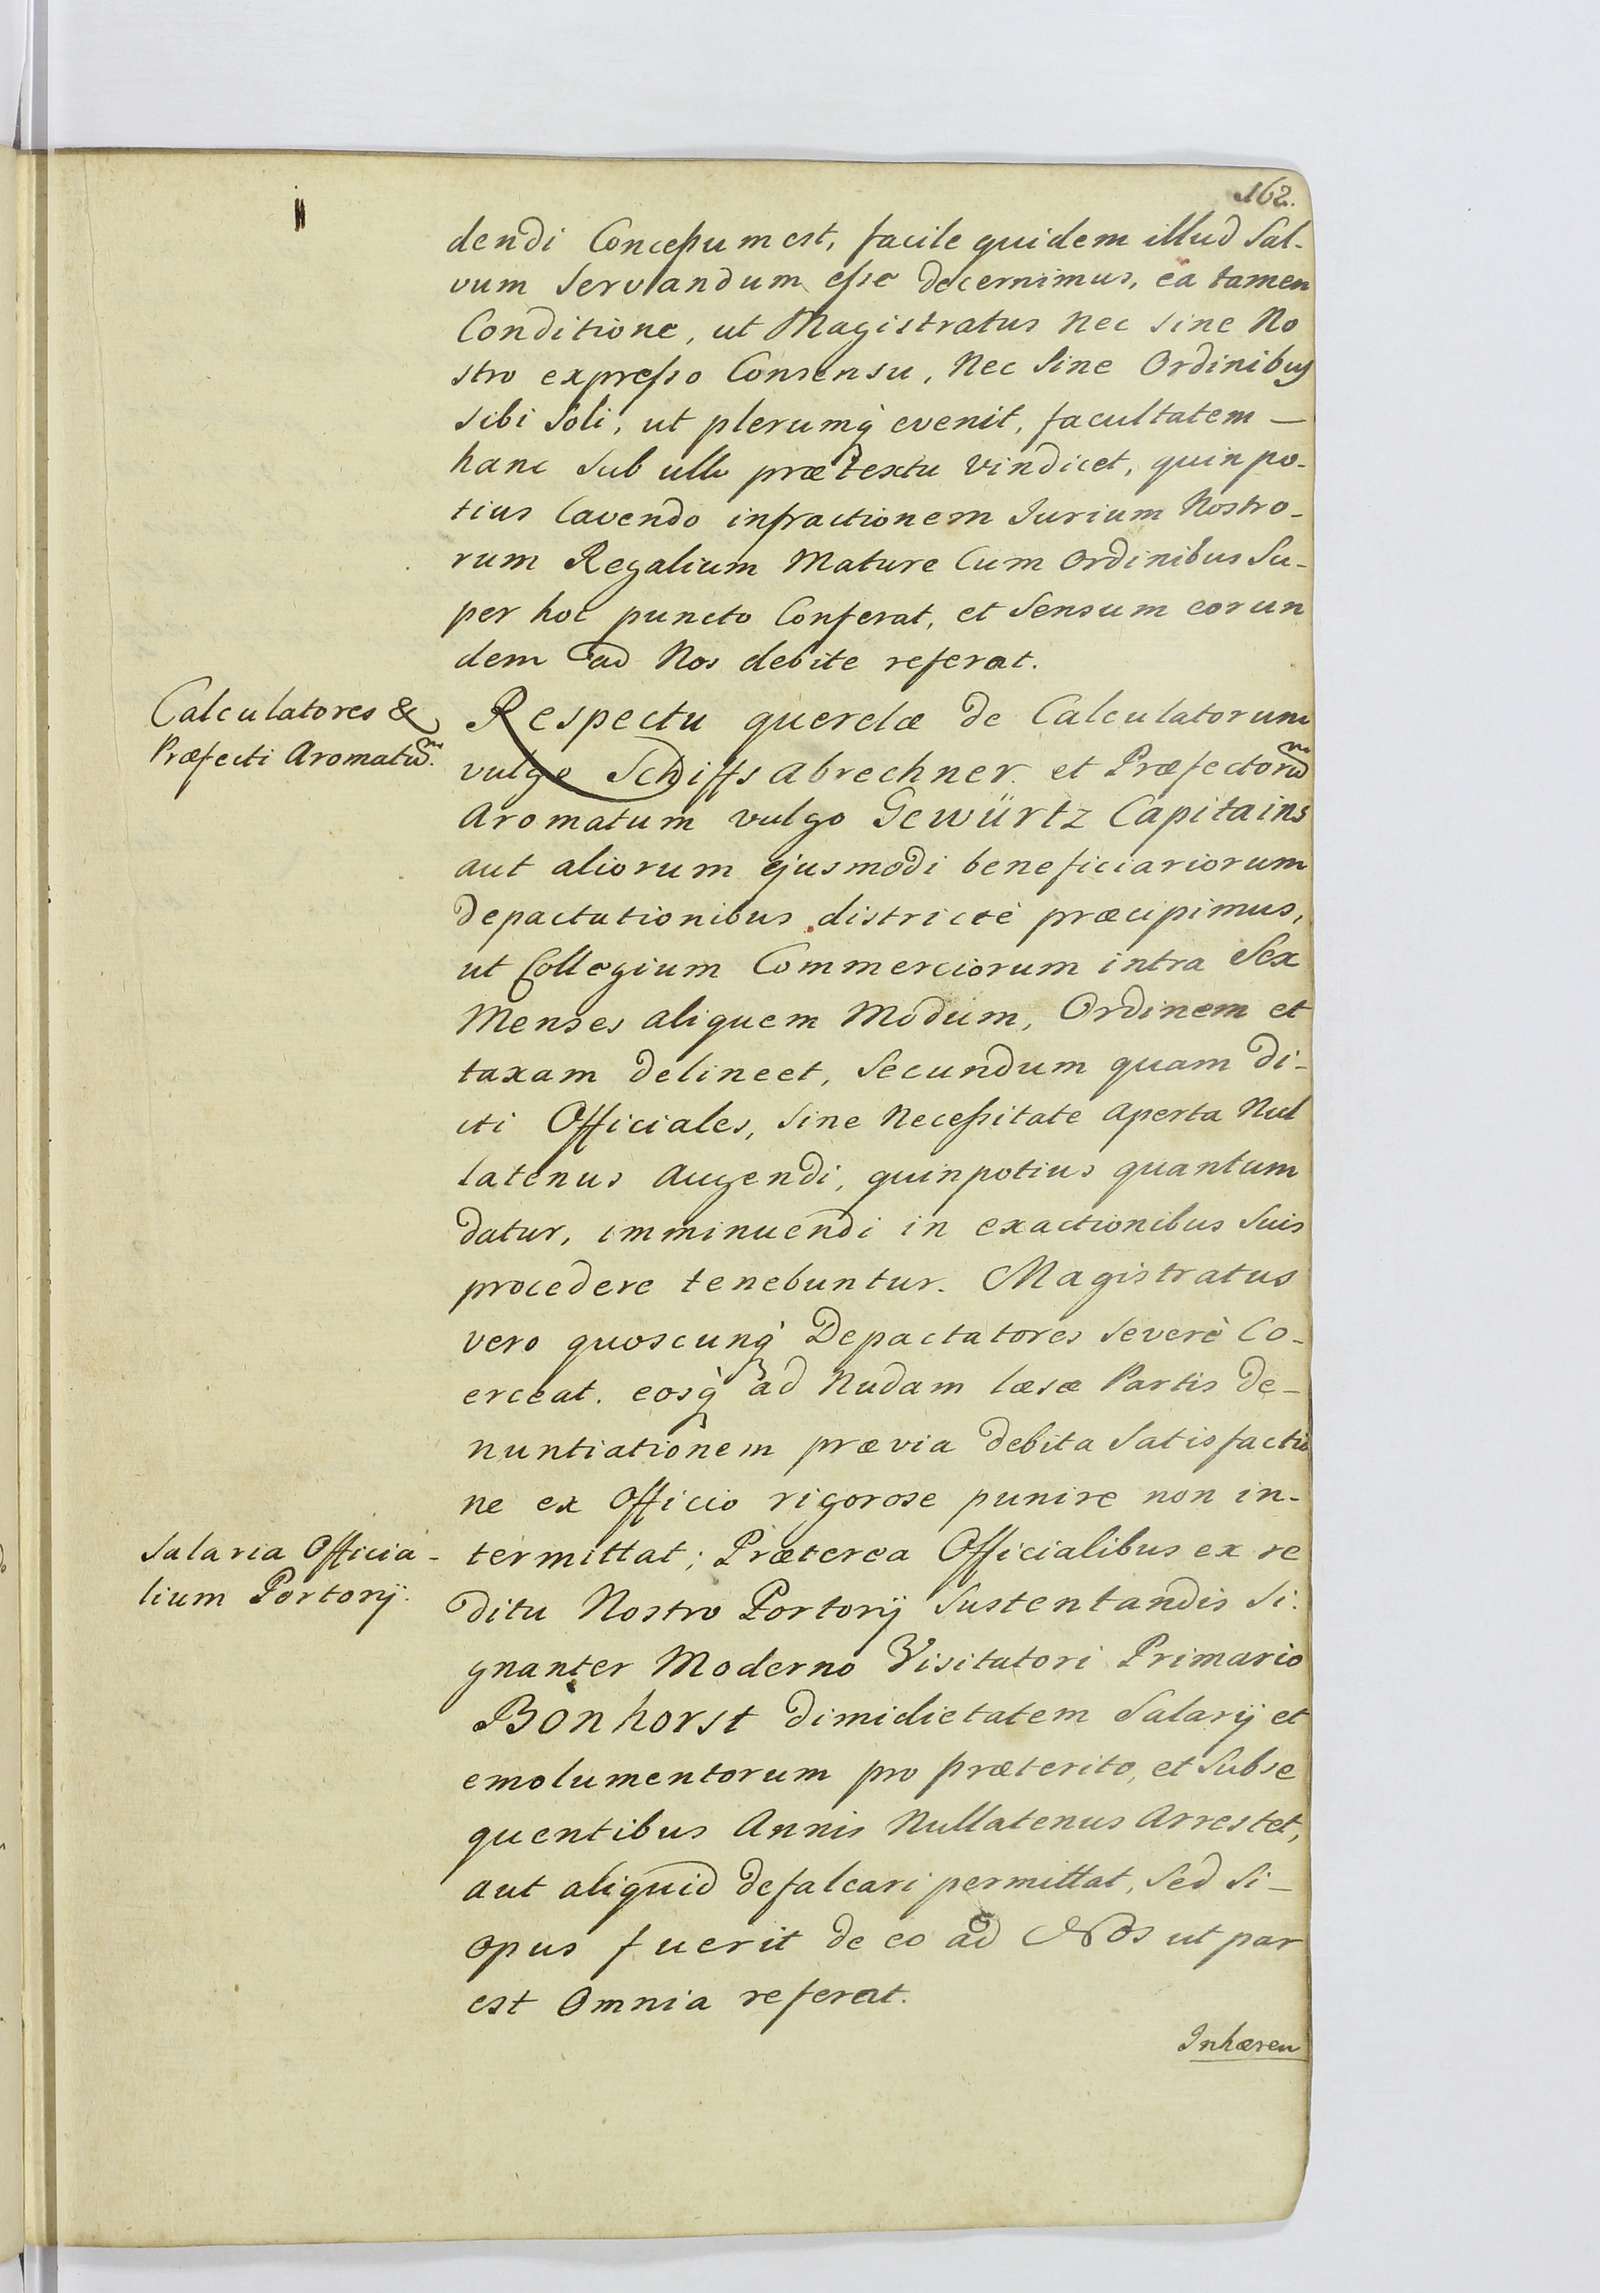 162.
dendi Concessum est, facile quidem illud Sal-
vum Servandum esse decernimus, ea tamen
Conditione, ut Magistratus nec sine No
stro expresso Consensu, nec sine Ordinibus
sibi soli, ut plerumq̀ evenit, facultatem —
hanc sub ullo prætextu vindicet, quin po-
tius Cavendo infractionem Jurium Nostro-
rum Regalium mature Cum Ordinibus Su-
per hoc puncto Conferat, et Sensum eorun
dem ad Nos debite referat.
Calculatores &
Præfecti Aromatum̄.
Respectu querelæ de Calculatorum
vulgo Schiffs abrechner. et Præfectorum̄
Aromatum vulgo Gewürtz Capitains
aut aliorum ejusmodi beneficiariorum
depactationibus districtè præcipimus,
ut Collegium Commerciorum intra Sex
Menses aliquem Modum, Ordinem et
taxam delineet, Secundum quam di-
cti Officiales, sine necessitate aperta Nul
latenus augendi, quinpotius quantum
datur, imminuendi in exactionibus Suis
procedere tenebuntur. Magistratus
vero quoscunq̀ Depactatores severè Co-
erceat. eosq̀ ad Nudam læsæ Partis De-
nuntiationem prævia debita Satisfactio
ne ex officio rigorose punire non in-
Salaria Officia-
lium Portorij.
termittat; Præterea Officialibus ex re
ditu Nostro Portorij Sustentandis Si-
gnanter Moderno Visitatori Primario
Bönhorst dimidietatem Salarij et
emolumentorum pro præterito, et Subse
quentibus Annis Nullatenus Arrestet,
aut aliquid defalcari permittat, Sed Si-
opus fuerit de eo ad Nos ut par
est Omnia referat.
Inhæren